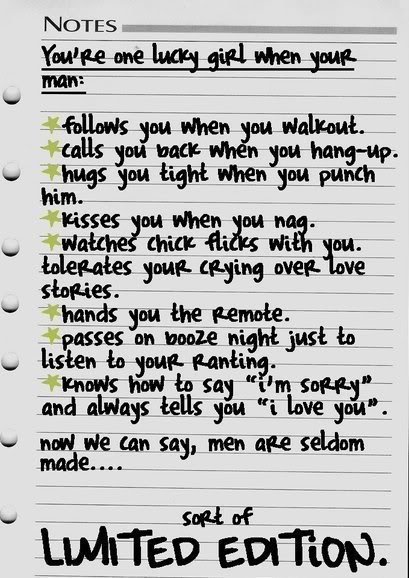 NOTES
You're one lucky girl when your
man:
follows you when you walkout.
calls you back when you hang-up.
hugs you tight when you punch
him.
kisses you when you nag.
watches chick flicks with you.
tolerates your crying over love
stories.
hands you the remote.
passes on booze night just to
listen to your ranting.
knows how to say "i'm sorry"
and always tells you "i love you".
now we can say, men are seldom
made....
sort of
LIMITED EDITION.